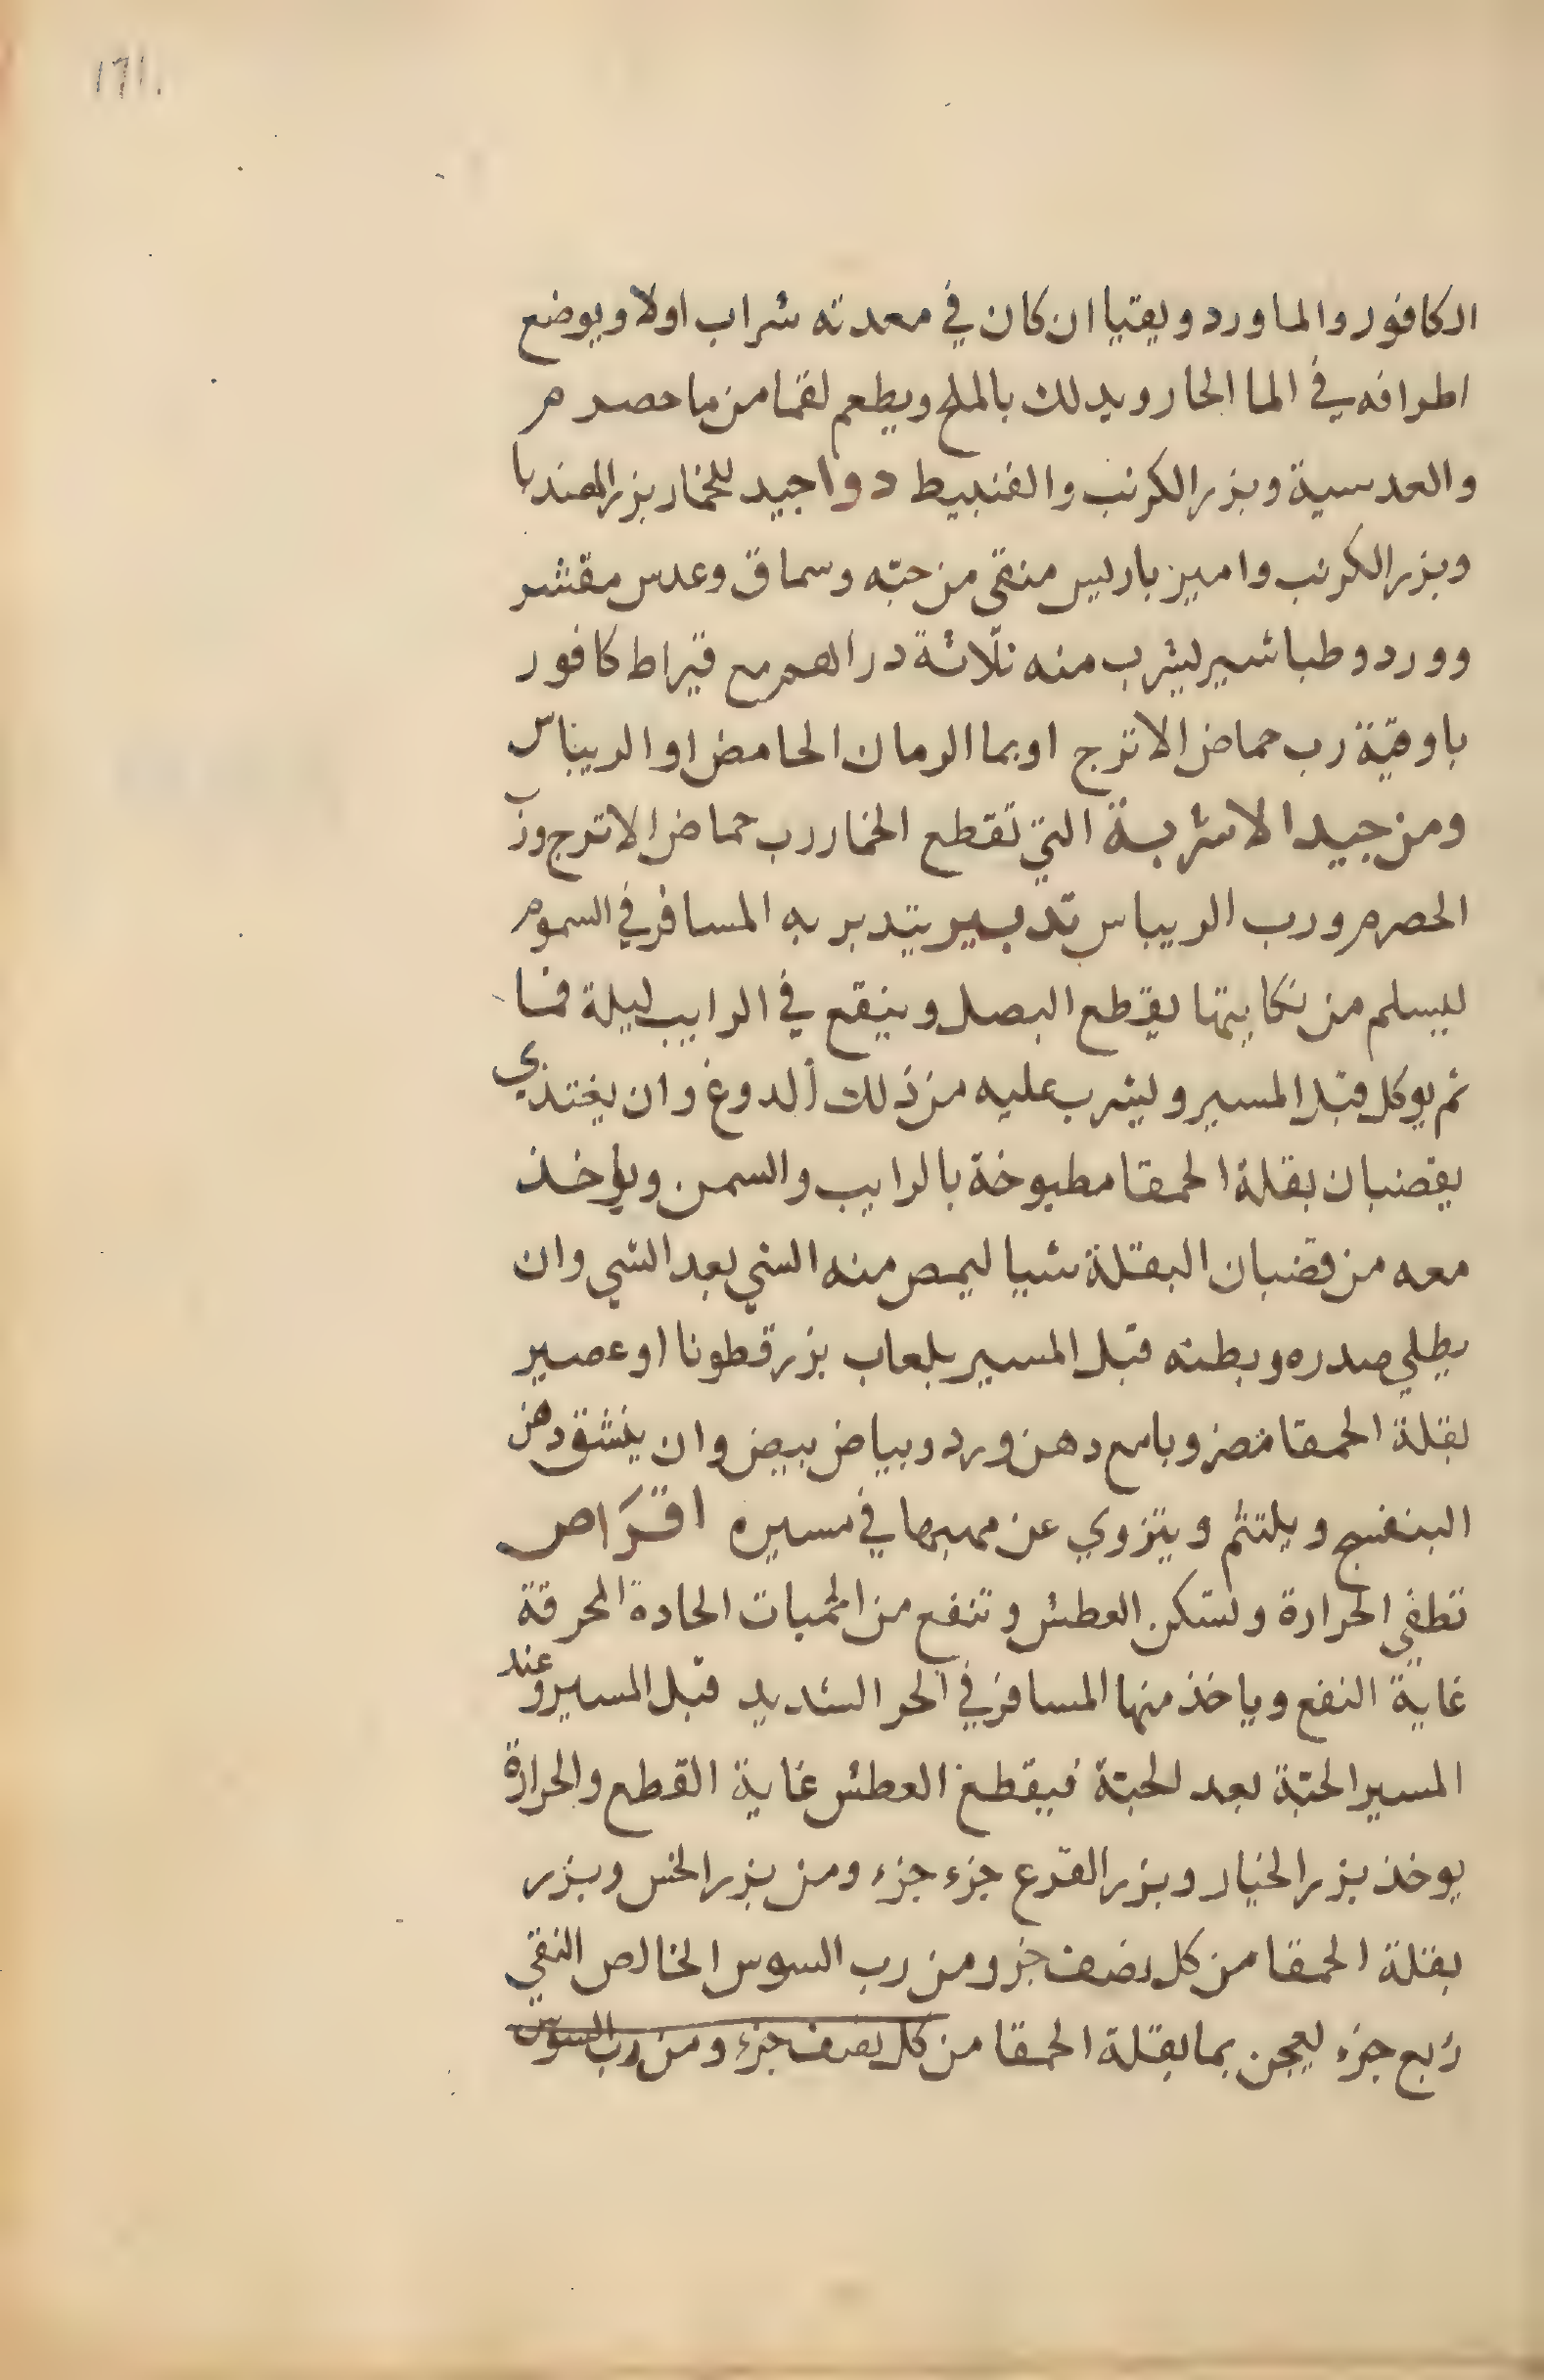 ١٦١
الكافور والما ورد ويقيا ان كان في معدته شراب اولا ويوضع
اطرافه في الما الحار ويدلك بالملح ويطعم لقما من ما حصرم
والعدسية وبزر الكرنب والقنبيط دوا جيد للخمار بزر الهندبا
وبزر الكرنب وامير باريس منقى من حبّه وسماق وعدس مقشر
وورد وطباشير يشرب منه ثلاثة دراهم مع قيراط كافور
باوقيّة رب حماض الاترج او بما الرمان الحامض او الريباس
ومن جيد الاشربة التي تقطع الخمار رب حماض الاترج ورب
الحصرم ورب الريباس تدبير يتدبر به المسافر في السموم
ليسلم من نكايتها يقطع البصل وينقع في الرايب ليلة
ثم يوكل قبل المسير ويشرب عليه من ذلك الدوغ وان يغتذي
بقضبان بقلة الحمقا مطبوخة بالرايب والسمن وياخذ
معه من قضبان البقلة شيا ليمص منه الشي بعد الشي وان
يطلي صدره وبطنه قبل المسير بلعاب بزرقطونا او عصير
بقلة الحمقا مضروبا مع دهن ورد وبياض بيض وان ينشق دهن
البنفسج ويلتثم ويتزوي عن مهبها في مسيره اقرَاص
تطفي الحرارة وتسكن العطش وتنفع من الحميات الحادة المحرقة
غاية النفع وياخذ منها المسافر في الحر الشديد قبل المسير وعند
المسير الحبّة بعد الحبّة فيقطع العطش غاية القطع والحرارة
يوخذ بزر الخيار وبزر القرع جزء جزء ومن بزر الخس وبزر
بقلة الحمقا من كل نصف جزو ومن رب السوس الخالص النقي
ربع جزء يعجن بما بقلة الحمقا من كل نصف جزء ومن رب السوس